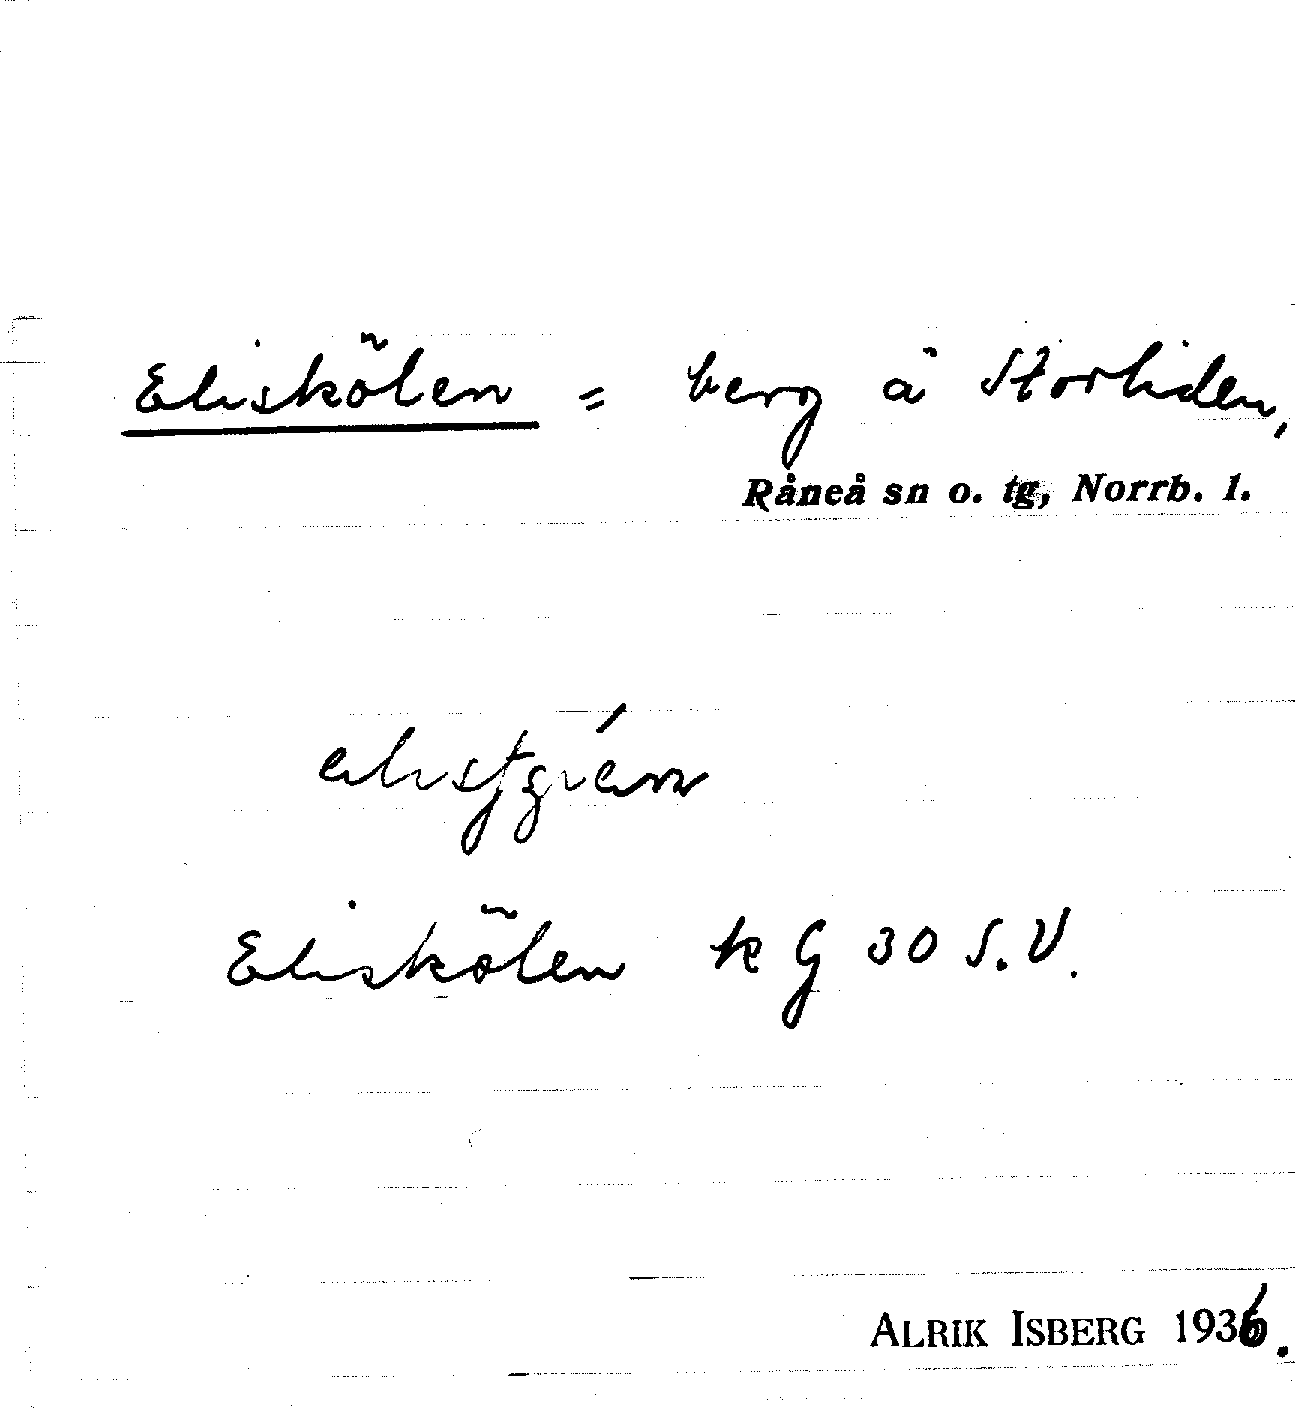 Eliskölen = berg å Storliden,
Råneå sn o. tg, Norrb. l.
Eliskölen kG 30 S.V.
ALRIK ISBERG 1936.